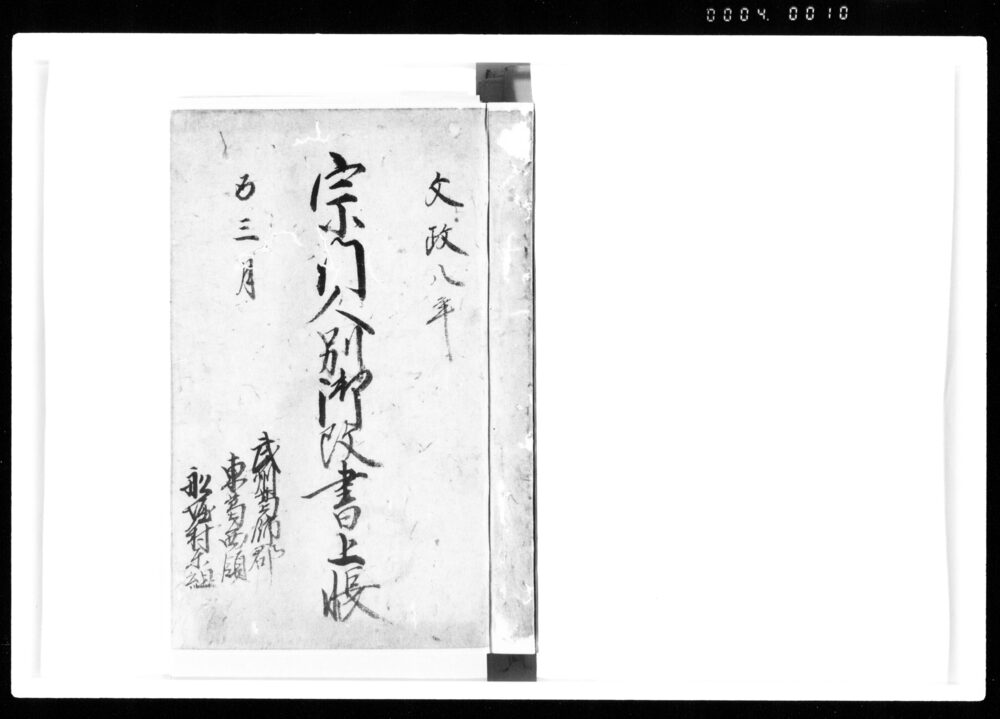 0004. 0010
文政八年
宗門人別御改書上帳
三月
武州葛飾郡
東葛西領
船堀村
組